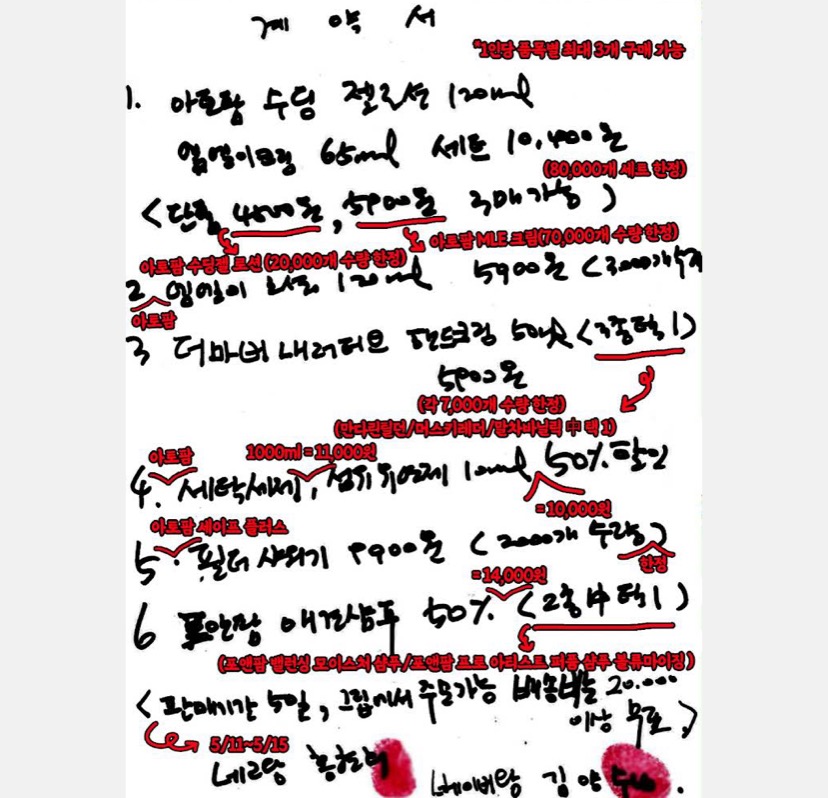 계 약 서
*1인당 품목별 최대 3개 구매 가능
1. 아토팜 수딩 젤로션 120ml
엠엘이크림 65ml 세트 10,400원
(80,000개 세트 한정)
<단품 4500원, 5900원 구매가능>
아토팜 수딩젤 로션 (20,000개 수량 한정)
아토팜 MLE 크림(70,000개 수량 한정)
2 엠엘이 로션 120ml 5900원 <3000개
아토팜
3 더마비 내러티브 핸드크림 50ml <3종택1>
5900원
(각 7,000개 수량 한정)
(만다린릴던/머스키레더/말차바닐릭 中 택 1)
아토팜 1000ml = 11,000원
4. 세탁세제, 섬유유연제 50% 할인
= 10,000원
아토팜 세이프 플러스
5. 필터 샤워기 9900원 (2000개 수량)
한정
= 14,000원
6 프앤팜 애견샴푸 50% (2종中택1)
(포앤팜 밸런싱 모이스처 샴푸/포앤팜 프로 아리스트 퍼퓸 샴푸 볼류마이징)
<판매기간 5일, 그립에서 주문가능 배송비는 20.000
이상 무료.>
5/11~5/15
네고왕 홍현희
네이버팜 김양수